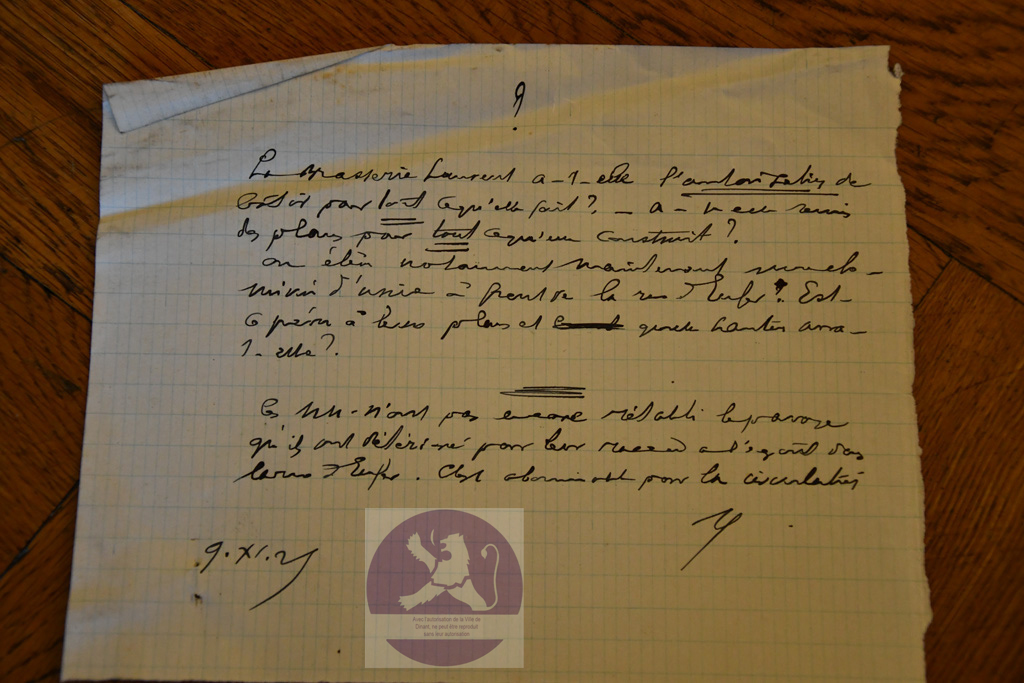 ?
La Brasserie Laurent a-t-elle l'autorisation de
bâtir pour tout ce qu'elle fait? - a-t-elle remis
des plans pour tout ce qu'elle construit?
on élève notamment maintenant une che-
minée d'usine à front de la rue d'Enfer? Est-
ce prévu à leurs plans et quelle hauteur aura-
t-elle?
Ces MM. n'ont pas encore rétabli le pavage
qu'ils ont détérioré pour leur raccord à l'égout dans
la rue d'Enfer. C'est abominable pour la circulation
9.XI.25
Avec l'autorisation de la Ville de
Dinant, ne peut être reproduit
sans leur autorisation